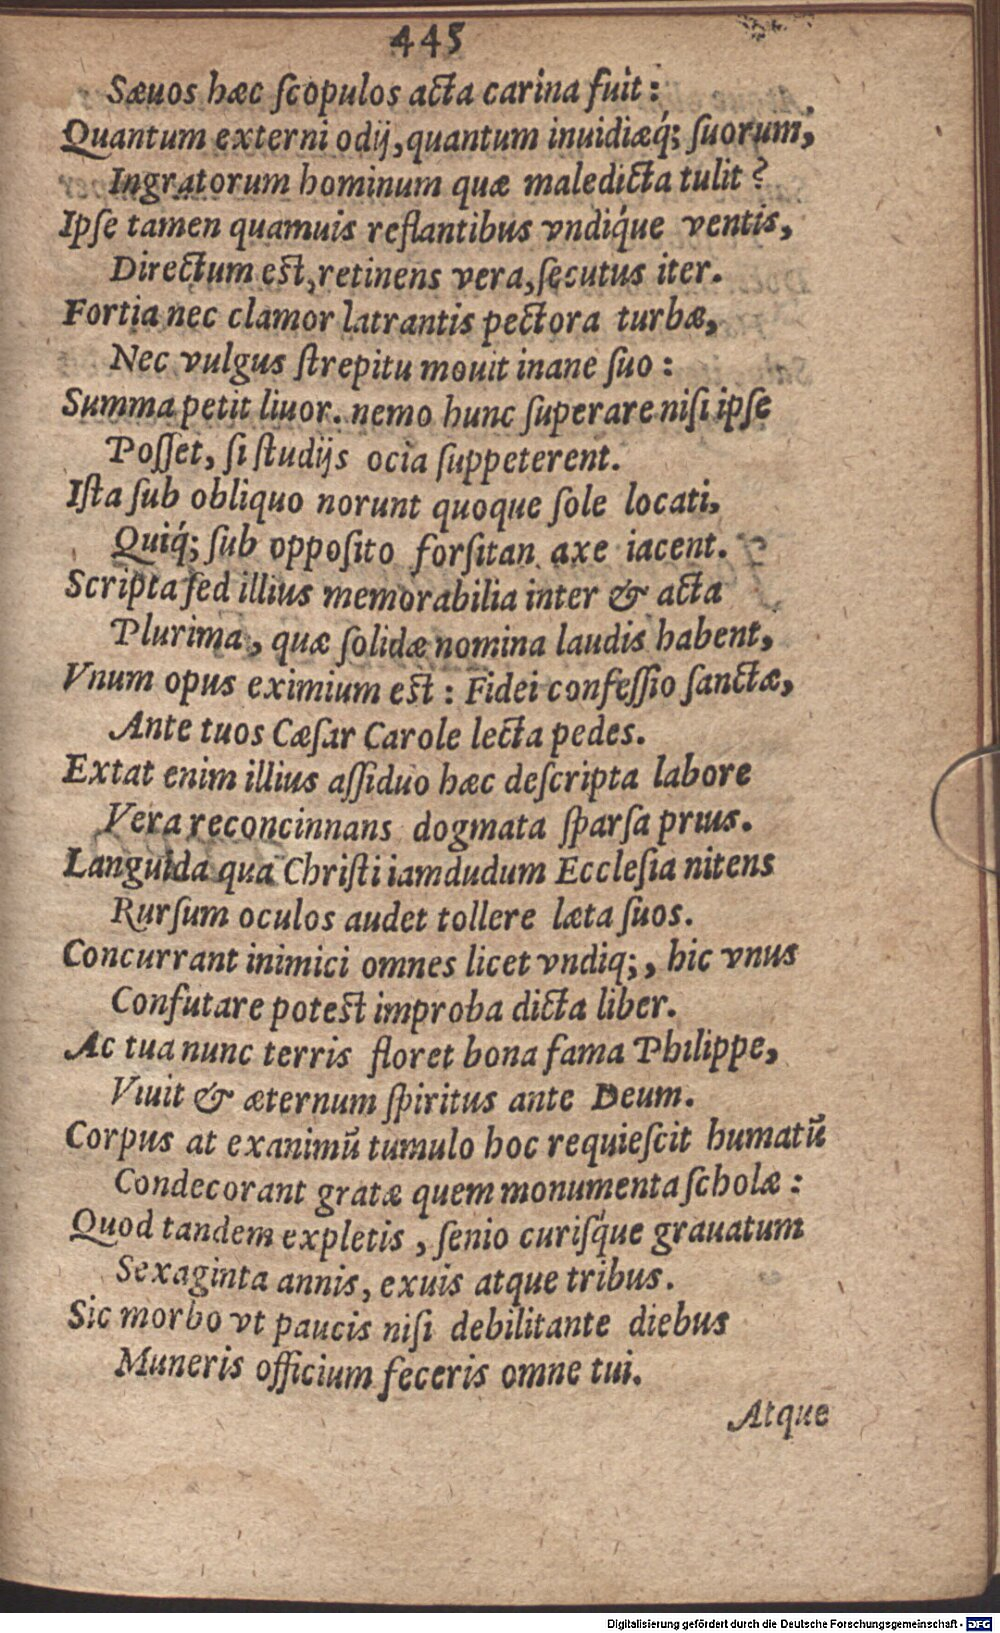 445
Sæuos hæc ſcopulos acta carina fuit:
Quantum externi odij, quantum inuidiæq́; ſuorum,
Ingratorum hominum quæ maledicta tulit?
Ipſe tamen quamuis reflantibus vndiq́ue ventis,
Directum est, retinens vera, ſecutus iter.
Fortia nec clamor latrantis pectora turbæ,
Nec vulgus ſtrepitu mouit inane ſuo:
Summa petit liuor. nemo hunc ſuperare niſi ipſe
Poſſet, ſi ſtudijs ocia ſuppeterent.
Iſta ſub obliquo norunt quoque ſole locati,
Quiq́; ſub oppoſito forſitan axe iacent.
Scripta ſed illius memorabilia inter & acta
Plurima, quæ ſolidæ nomina laudis habent,
Vnum opus eximium est: Fidei confeſſio ſanctæ,
Ante tuos Cæſar Carole lecta pedes.
Extat enim illius aſſiduo hæc deſcripta labore
Vera reconcinnans dogmata ſparſa prius.
Languida qua Chriſti iamdudum Eccleſia nitens
Rurſum oculos audet tollere læta ſuos.
Concurrant inimici omnes licet vndiq;, hic vnus
Confutare potest improba dicta liber.
Ac tua nunc terris floret bona fama Philippe,
Viuit & æternum ſpiritus ante Deum.
Corpus at exanimũ tumulo hoc requieſcit humatũ
Condecorant gratæ quem monumenta ſcholæ:
Quod tandem expletis, ſenio curiſq́ue grauatum
Sexaginta annis, exuis atque tribus.
Sic morbo vt paucis niſi debilitante diebus
Muneris officium feceris omne tui.
Atque
Digitalisierung gefördert durch die Deutsche Forschungsgemeinschaft - DFG